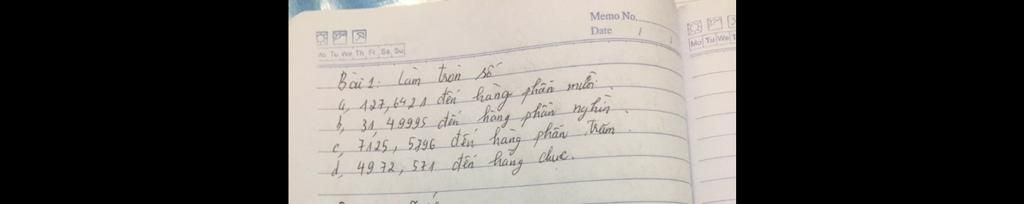 Memo No.
Date / /
Mo Tu We Th Fr Sa Su
Mo Tu We T
Bài 1: Làm tròn số
a, 127,6421 đến hàng phần mười
b, 31,49995 đến hàng phần nghìn.
c, 7125,5796 đến hàng phần trăm.
d, 4972,571 đến hàng chục.